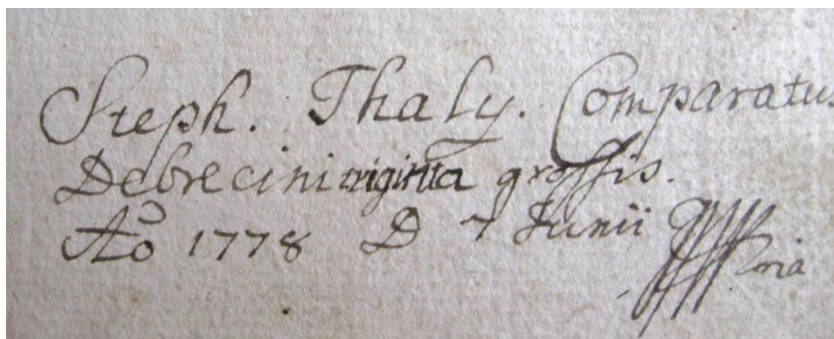 Steph. Thaly. Comparatu
Debrecini triginta grossis.
Ao 1778 D 7 Junii mia